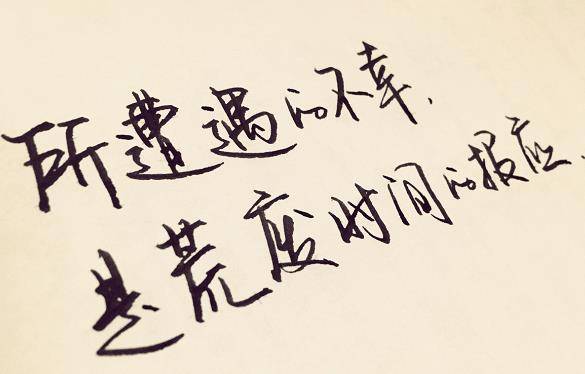 所遭遇的不幸,
是荒度时间的报应.